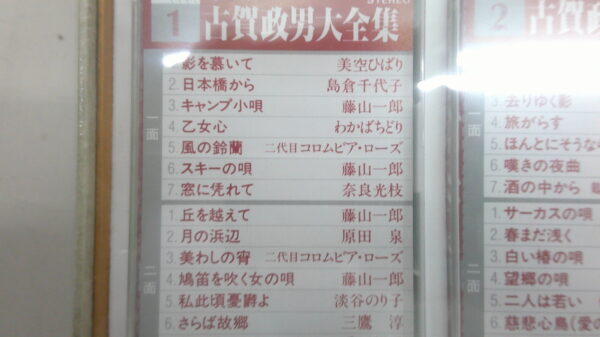 STEREO
1 古賀政男大全集
一面
影を慕いて 美空ひばり
2. 日本橋から 島倉千代子
3. キャンプ小唄 藤山一郎
4. 乙女心 わかばちどり
5. 風の鈴蘭 二代目コロムビア・ローズ
6. スキーの唄 藤山一郎
7. 窓に凭れて 奈良光枝
二面
1. 丘を越えて 藤山一郎
2. 月の浜辺 原田 泉
3. 美わしの宵 二代目コロムビア・ローズ
4. 鳩笛を吹く女の唄 藤山一郎
5. 私此頃憂鬱よ 淡谷のり子
6. さらば故郷 三鷹 淳
2 古賀政
一面
3. 去りゆく影
4. 旅がらす
5. ほんとにそうな
6. 嘆きの夜曲
7. 酒の中から
二面
1. サーカスの唄
2. 春まだ浅く
3. 白い椿の唄
4. 望郷の唄
5. 二人は若い
6. 慈悲心鳥(愛の